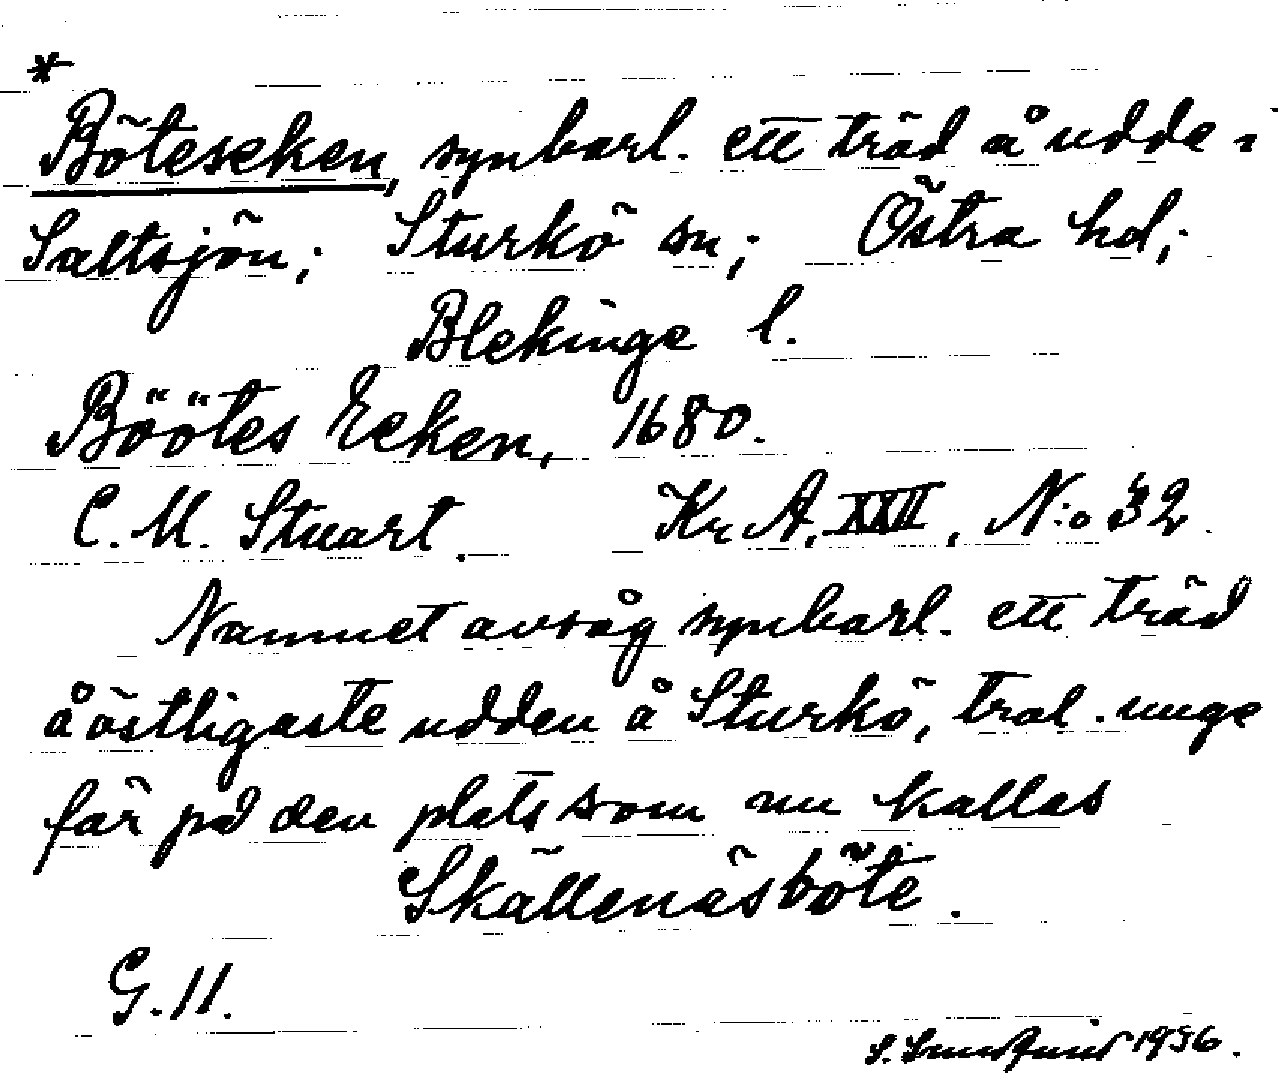 *
Böteseken, synbarl. ett träd å udde i
Saltsjön; Sturkö sn; Östra hd;
Blekinge l.
Böötes Ecken, 1680.
C. M. Stuart. Kr. A. XXII, N:o 32.
Namnet avsåg synbarl. ett träd
å östligaste udden å Sturkö, trol. unge
fär på den plats som nu kallas
Skällenäsböte.
G. 11.
S. 1936.